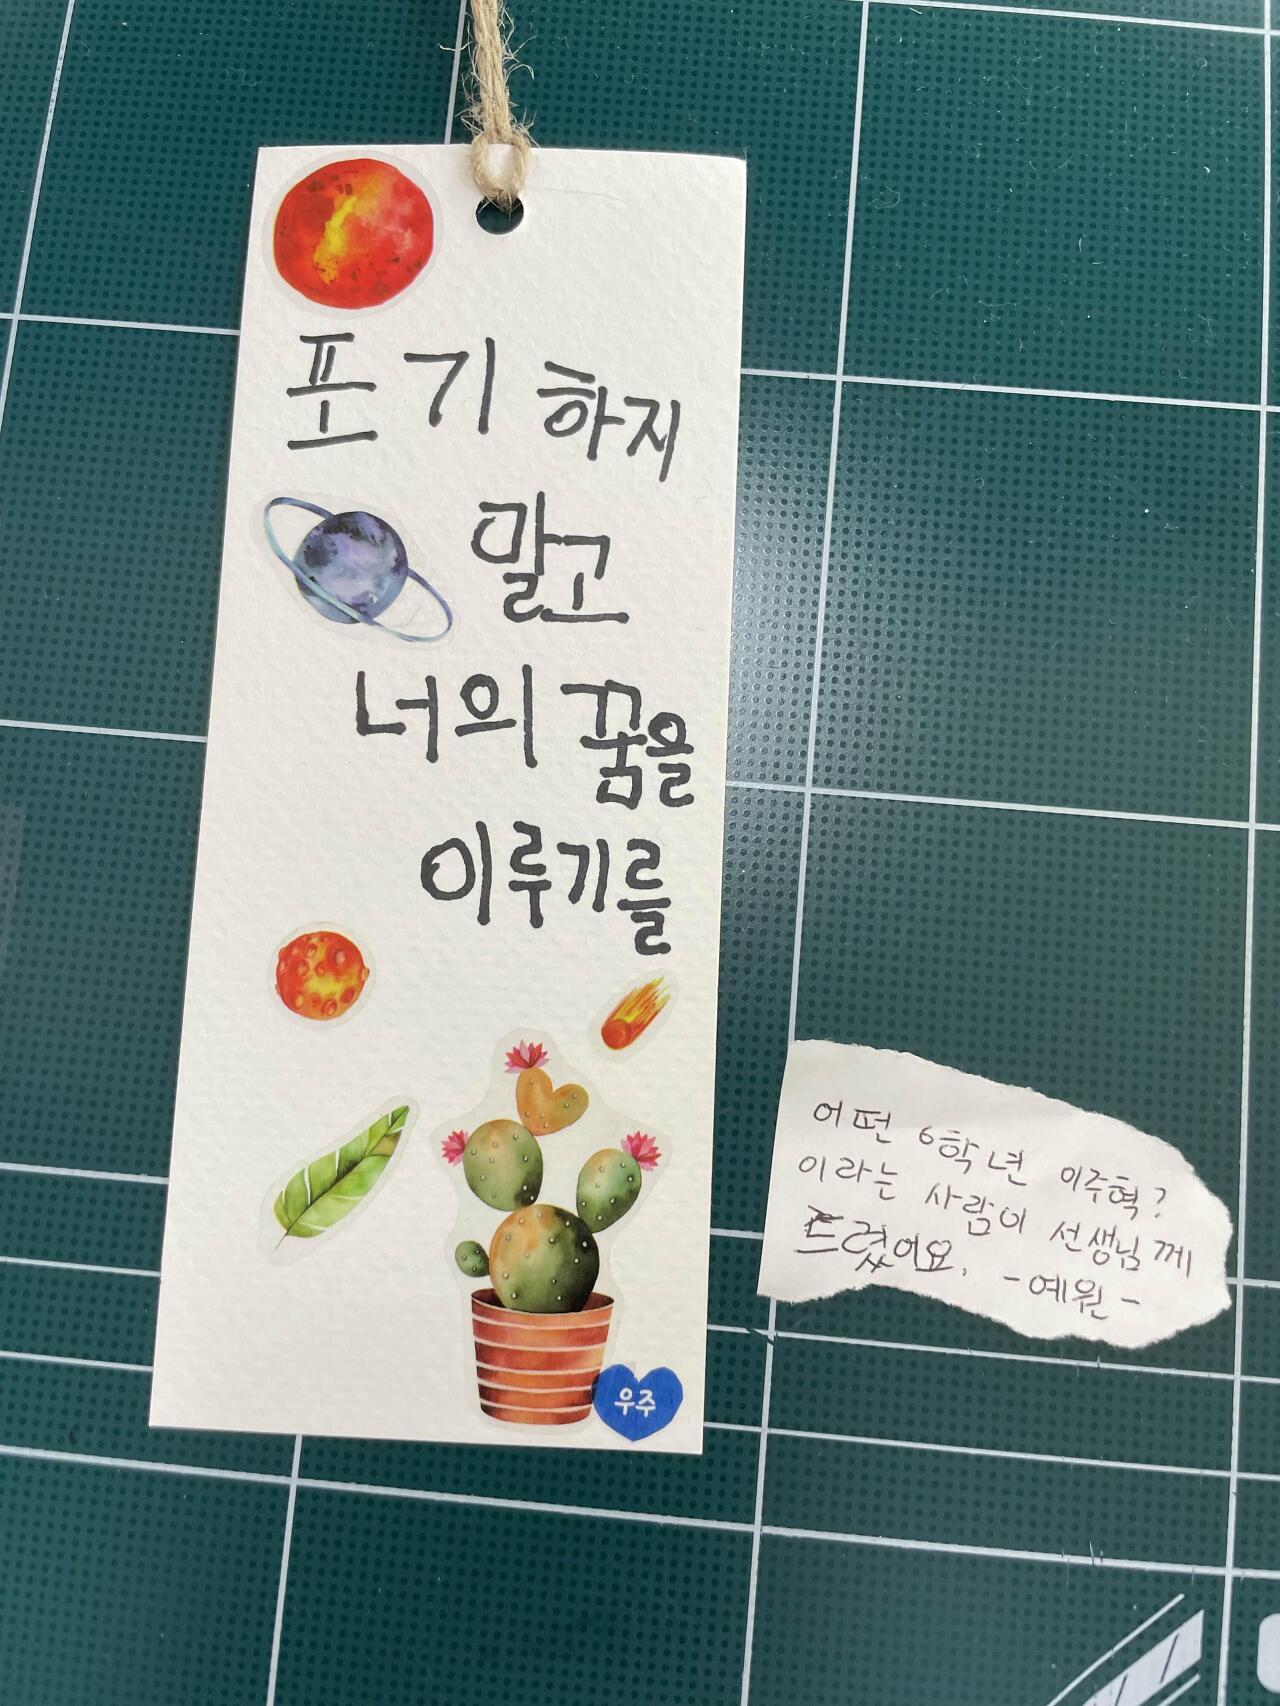 포기하지
말고
너의 꿈을
이루기를
우주
어떤 6학년 이주혁?
이라는 사람이 선생님께
드렸어요. -예원-